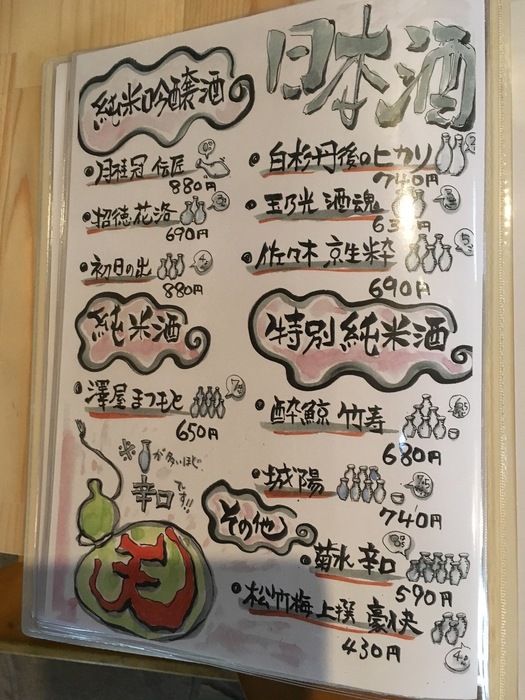 日本酒
純米吟醸酒
・月桂冠 伝匠
880円
・招徳花洛
690円
・初日の出
880円
・白杉丹後のヒカリ
740円
・玉乃光 酒魂
・佐々木 京生粋
690円
純米酒
・澤屋まつもと
650円
特別純米酒
・酔鯨 竹寿
680円
・城陽
740円
その他
・菊水 辛口
590円
・松竹梅上撰 豪快
430円
※
が多いほど
辛口です!!